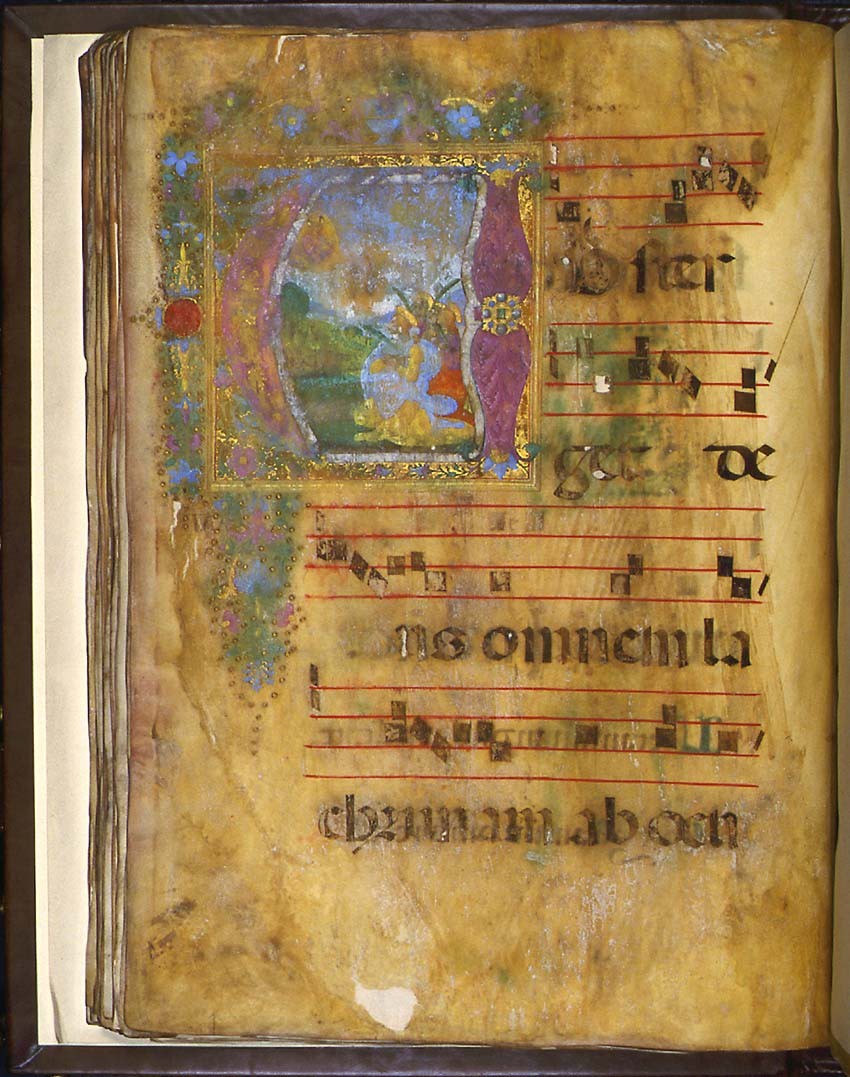 Abster
get de
us omnem la
chrimam ab ocu